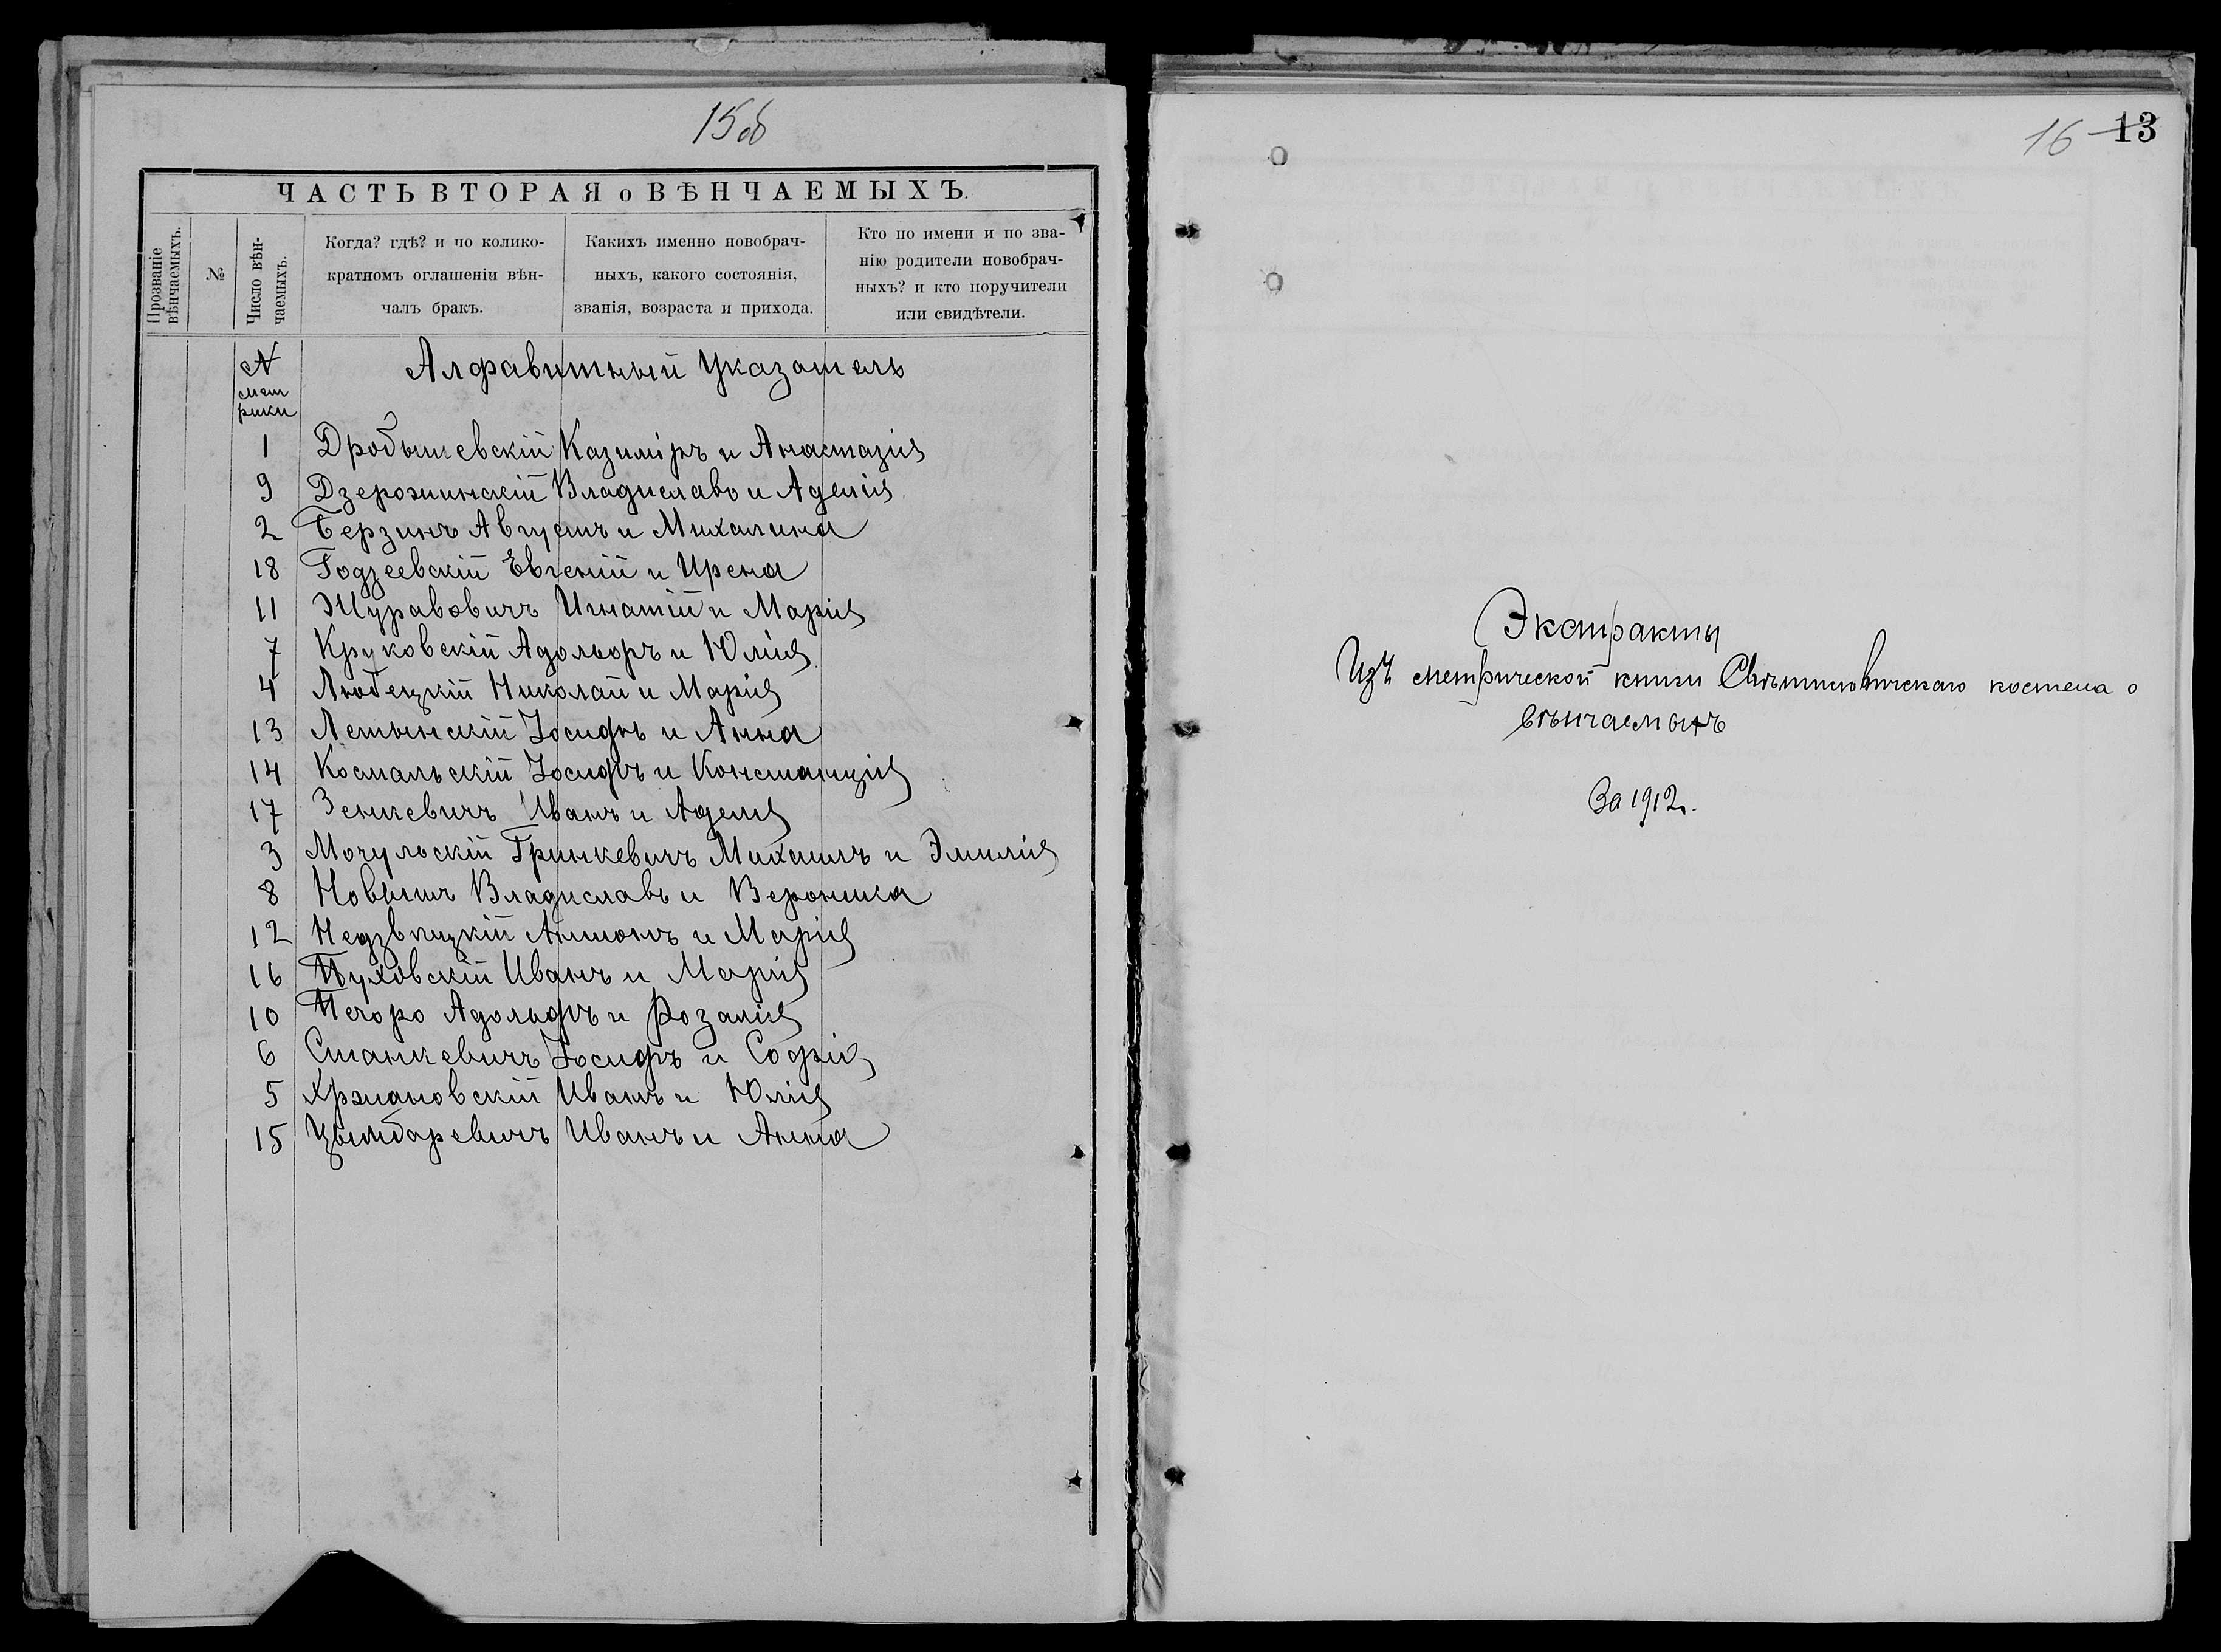 15об
ЧАСТЬ ВТОРАЯ о ВѢНЧАЕМЫХЪ.
Прозваніе вѣнчаемыхъ.
№
Число вѣн-
чаемыхъ.
Когда? гдѣ? и по колико-
кратномъ оглашеніи вѣн-
чалъ бракъ.
Какихъ именно новобрач-
ныхъ, какого состоянія,
званія, возраста и прихода.
Кто по имени и по зва-
нію родители новобрач-
ныхъ? и кто поручители
или свидѣтели.
№ мет
рики
Алфавитный Указатель
1 Дробышевскій Казиміръ и Анастазія
9 Дзерожинскій Владиславъ и Аделія
2 Берзинъ Августъ и Михалина
18 Годзеевскій Евгеній и Ирена
11 Журавовичъ Игнатій и Марія
7 Круковскій Адольфъ и Юлія
4 Любецкій Николай и Марія
13 Летынскій Іосифъ и Анна
14 Космальскій Іосифъ и Констанція
17 Зенкевичъ Иванъ и Аделя
3 Мочульскій Гринкевичъ Михаилъ и Эмилія
8 Владиславъ и Вероника
12 Недзвѣцкій Антонъ и Марія
16 Пуховскій Иванъ и Марія
10 Печоро Адольфъ и Розалія
6 Станкевичъ Іосифъ и Софія
5 Хржановскій Иванъ и Юлія
15 Цымбаревичъ Иванъ и Анна
16 13
Экстракты
Изъ метрической книги костела о
вѣнчаемыхъ
За 1912г.